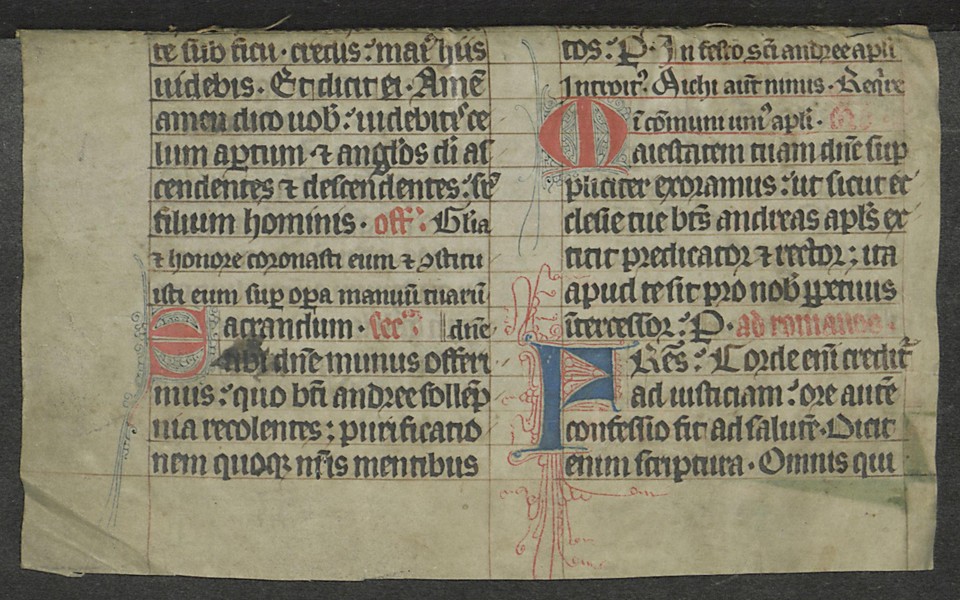 te sub ficu · credis : mai⁹ hiis
uidebis · Et dicit ei · Amē
amen dico uob᷒ : uidebitis ce
lum aꝑtum ⁊ angl̄os di as
cendentes ⁊ descendentes : sr̄
filium hominis · off̄ : Gl̄ia
⁊ honore coronasti eum ⁊ ꝯstitu
isti eum suꝑ oꝑa manuū tuarū
acrandum · sec᷒ dn̄e
tibi dn̄e munus offeri
mus : quo bt̄i andree sollēp
nia recolentes ; purificatio
nem quoqꝫ nr̄is mentibus
tos : P · In festo sc̄i andree apl̄i
Introit⁹ · Michi aut̄ nimis · Req̄re
ī cōmuni uni⁹ apl̄i ·
Maiestatem tuam dn̄e sup
pliciter exoramus : ut sicut ec
clesie tue bt̄s andreas apl̄s ex
titit predicator ⁊ rector ; ita
apud te sit pro nob᷒ ꝑpetuus
īt̄cessor : P · ad romanos ·
FRēs : Corde eni creditr̄
ad iusticiam : ore autē
confessio fit ad salutē · Dicit
enim scriptura · Omnis qui